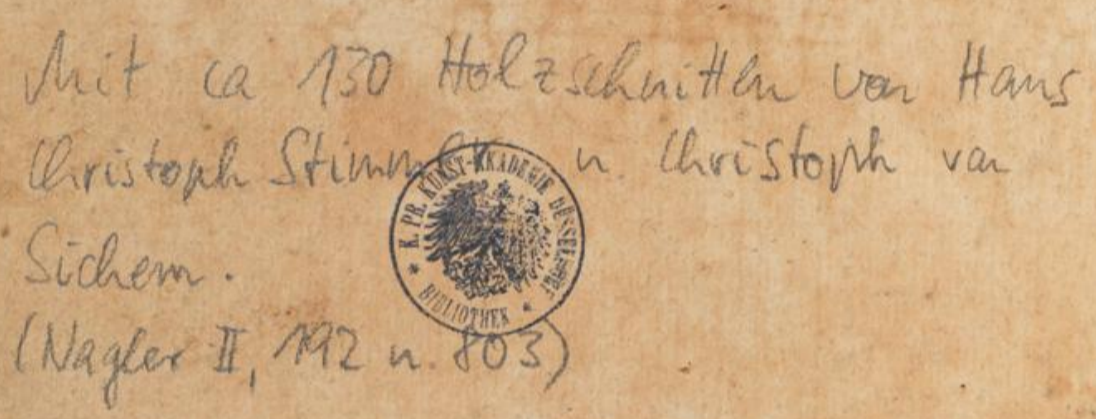 Mit ca 130 Holzschnitten von Hans
Christoph Stimmer u. Christoph van
Sichem.
(Nagler II, 192 u. 803)
* K. PR. KUNST-AKADEMIE DÜSSELDORF *
BIBLIOTHEK